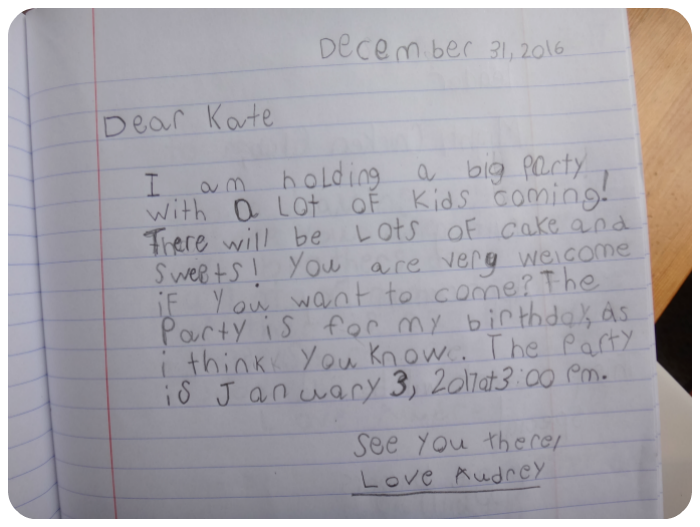 December 31, 2016
Dear Kate
I am holding a big party
with a lot of kids coming!
There will be lots of cake and
sweets! You are very welcome
if you want to come? The
Party is for my birthday, as
i think you know. The Party
is January 3, 2017 at 3:00 pm.
See you there,
Love Audrey